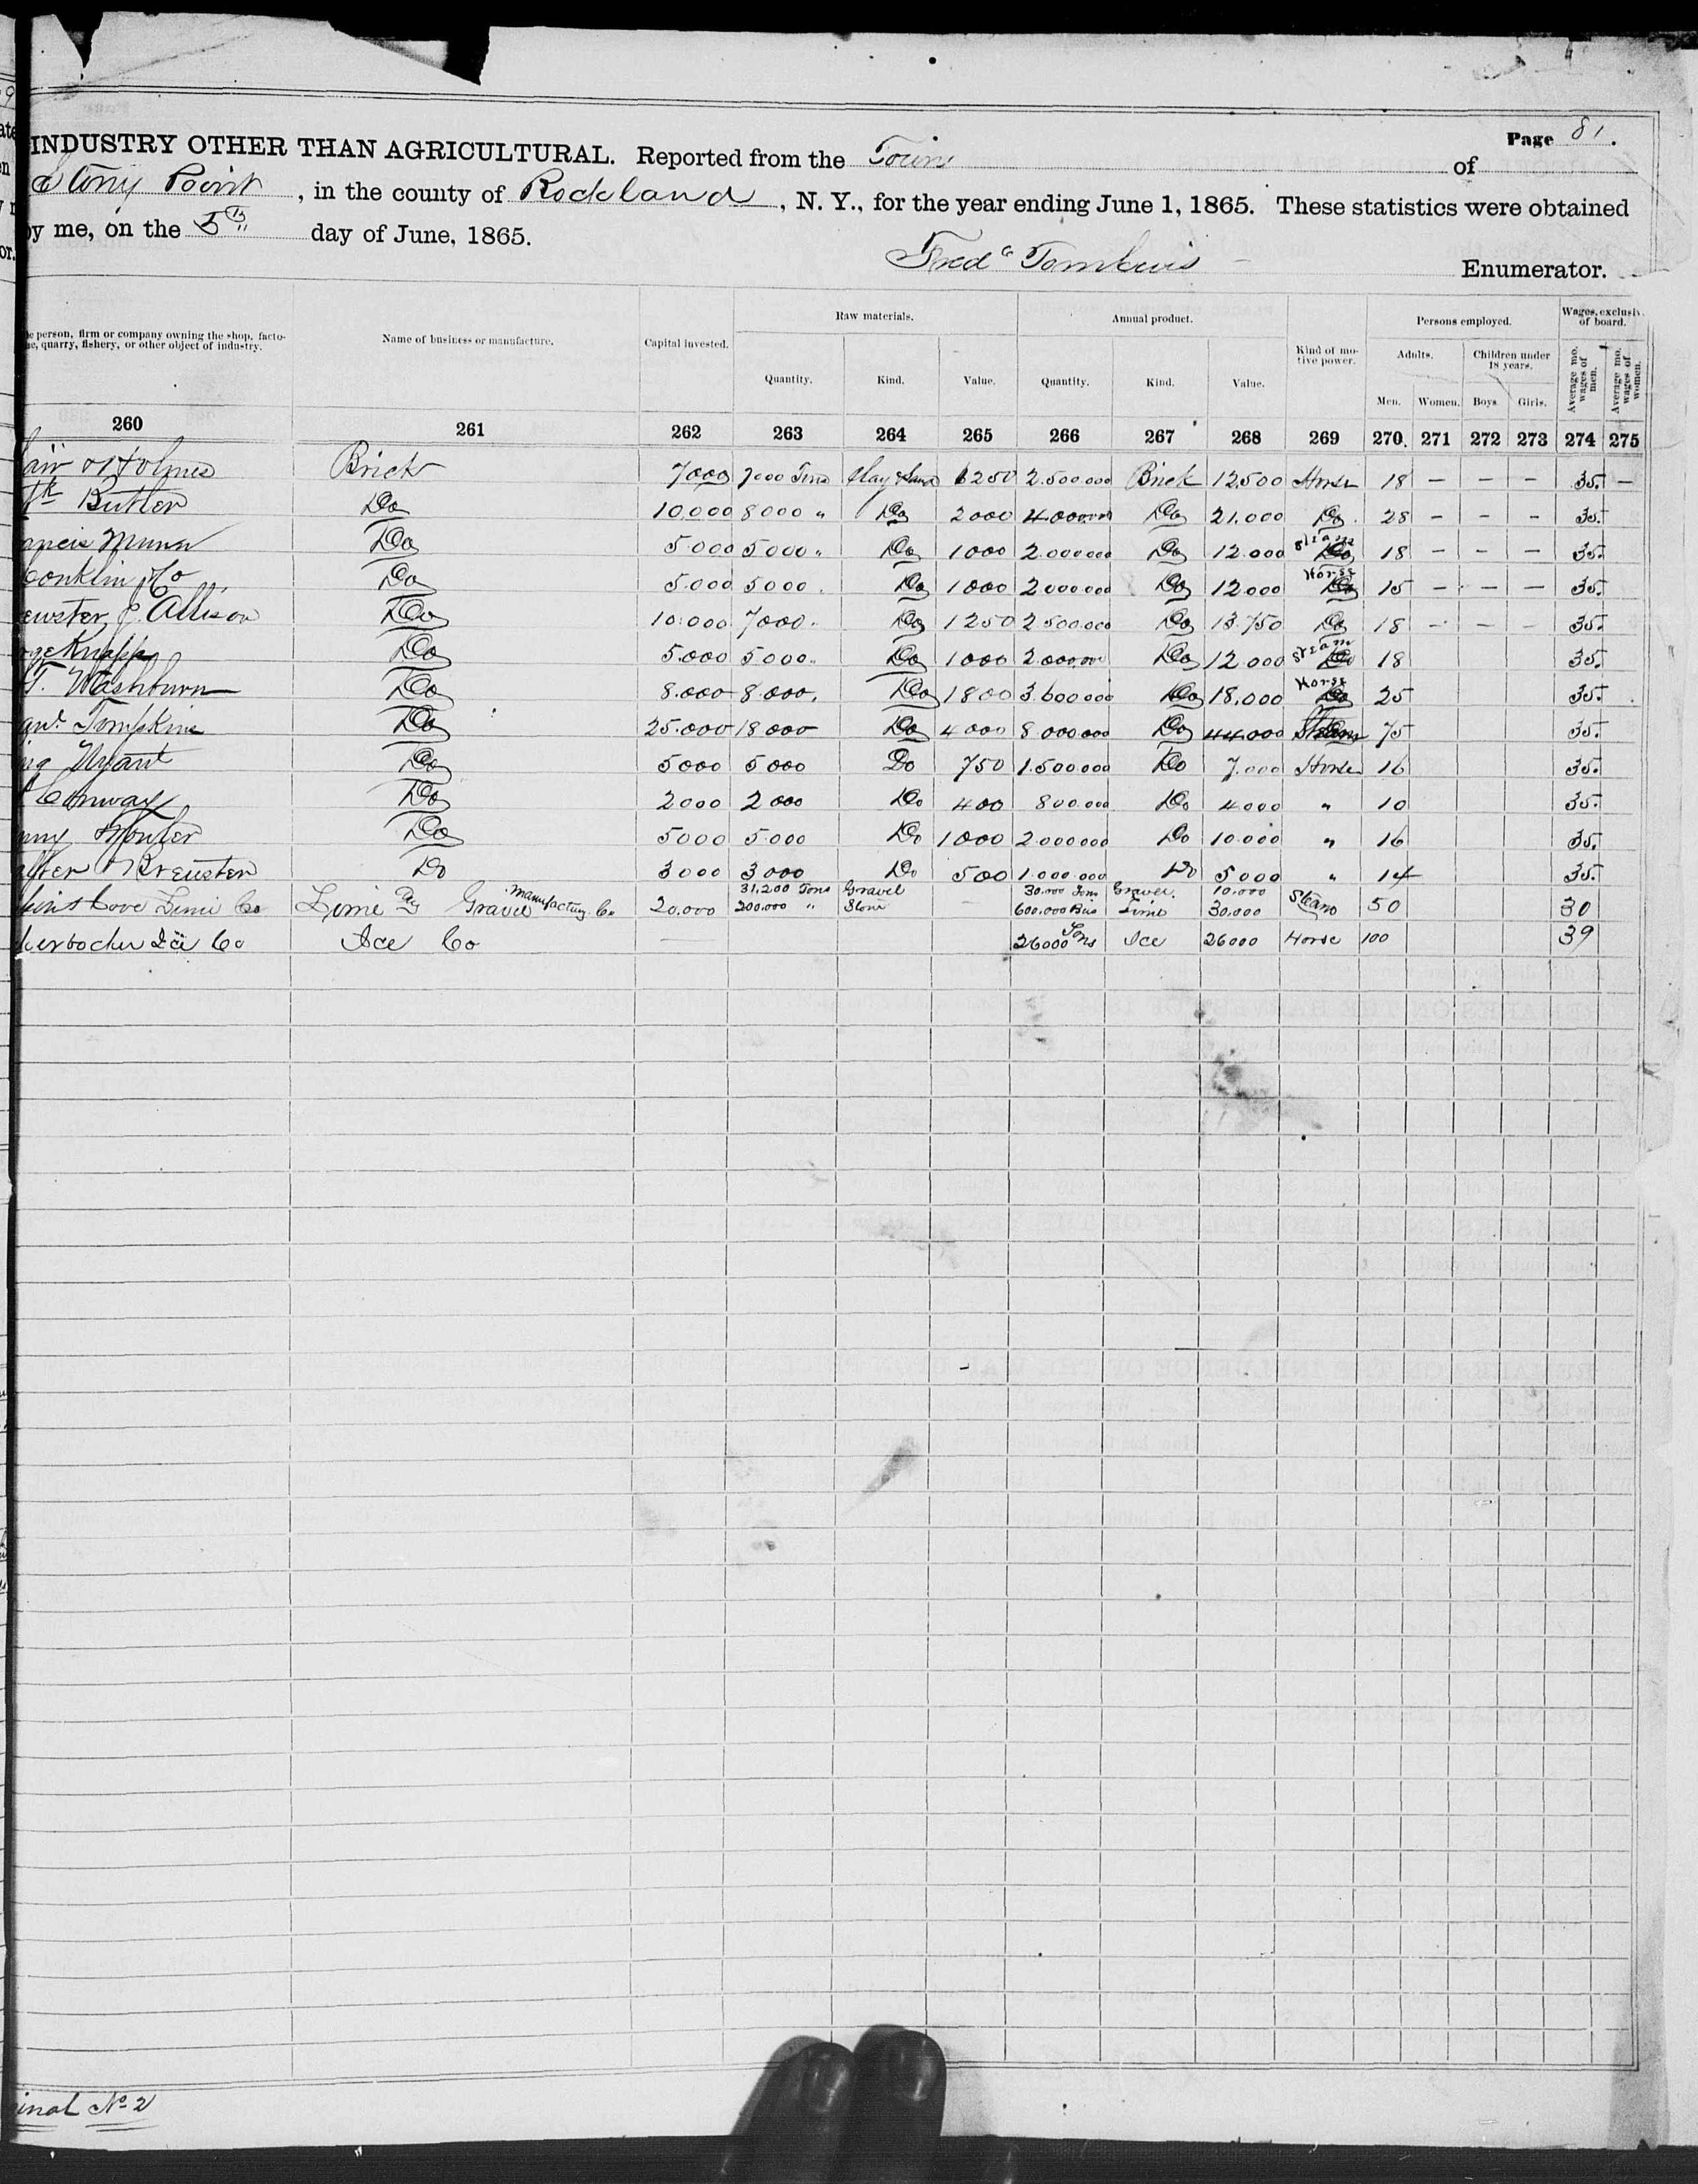 Page 81.
INDUSTRY OTHER THAN AGRICULTURAL. Reported from the Town of
Stony Point, in the county of Rockland, N. Y., for the year ending June 1, 1865. These statistics were obtained
by me, on the 5th day of June, 1865.
Enumerator.
person, firm or company owning the shop, facto- Name of business or manufacture. Capital invested. Raw materials. Annual product. Kind of mo- Persons employed. Wages, exclusiv
quarry, fishery, or other object of industry. tive power. Adults. Children under of board.
18 years.
Quantity. Kind. Value. Quantity. Kind. Value. Men. Women. Boys Girls. Average mo. wages of men. Average mo. wages of women.
260 261 262 263 264 265 266 267 268 269 270. 271 272 273 274 275
Holmes Brick 7000 7000 Tons Clay & Sand 1250 2.500.000 Brick 12,500 Horse 18 – – – 35. –
Butler Do 10.000 8000 " Do 2000 4.000.000 Do 21.000 Do 28 – – – 35.
Munn Do 5.000 5000 " Do 1000 2.000.000 Do 12.000 Steam 18 – – – 35.
Conklin & Co Do 5.000 5000 Do 1000 2.000.000 Do 12.000 Horse 15 – – – 35.
J. Allison Do 10.000 7000 Do 1250 2.500.000 Do 13.750 Do 18 – – – 35.
Knapp Do 5.000 5000 Do 1000 2.000.000 Do 12.000 Steam 18 35.
T. Washburn Do 8.000 8.000. Do 1800 3.600.000 Do 18.000 Horse 25 35.
Tompkins Do 25.000 18000 Do 4000 8.000.000 Do 44.000 Steam 75 35.
Do 5000 5000 Do 750 1.500.000 Do 7.000 Horse 16 35.
Conway Do 2000 2000 Do 400 800.000 Do 4000 " 10 35.
Fowler Do 5000 5.000 Do 1000 2.000.000 Do 10.000 " 16 35.
Brewster Do 3000 3000 Do 500 1.000.000 Do 5000 " 14 35.
31,200 Tons Gravel 30.000 Tons Gravel 10,000
Cove Lime Co Lime & Gravel Manufacturing Co 20,000 200.000 " Stone – 600,000 Bus Lime 30,000 Steam 50 30
Ice Co Ice Co 26000 Tons Ice 26000 Horse 100 39
inal No 2